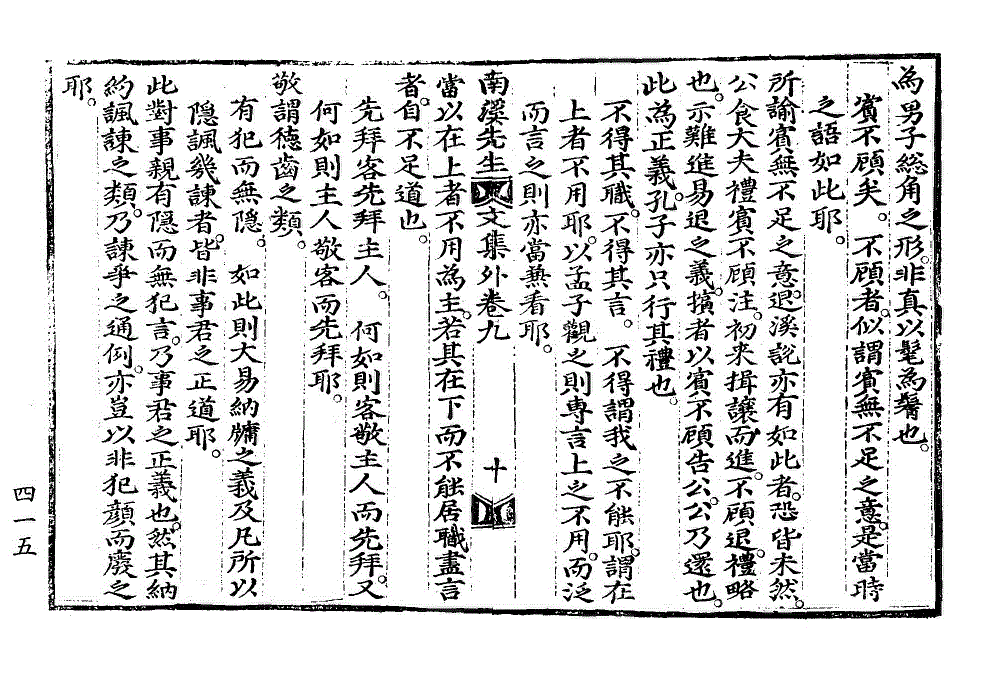 為男子総角之形。非真以髦為鬌也。
賓不顧矣。不顧者。似謂賓無不足之意。是當時
之語如此耶。
所諭賓無不足之意。退溪說亦有如此者。恐皆未然。
公食大夫禮賓不顧注。初來揖讓而進。不顧退。禮略
也。示難進易退之義。擯者以賓不顧告公。公乃還也。
此為正義。孔子亦只行其禮也。
不得其職。不得其言。不得謂我之不能耶。謂在
上者不用耶。以孟子觀之則專言上之不用。而泛
而言之則亦當兼看耶。
南溪先生文集外卷九 十
當以在上者不用為主。若其在下而不能居職盡言
者。自不足道也。
先拜客先拜主人。何如則客敬主人而先拜。又
何如則主人敬客而先拜耶。
敬謂德齒之類。
有犯而無隱。如此則大易納牖之義及凡所以
隱諷幾諫者。皆非事君之正道耶。
此對事親有隱而無犯言。乃事君之正義也。然其納
約諷諫之類。乃諫爭之通例。亦豈以非犯顏而廢之
耶。
四一五